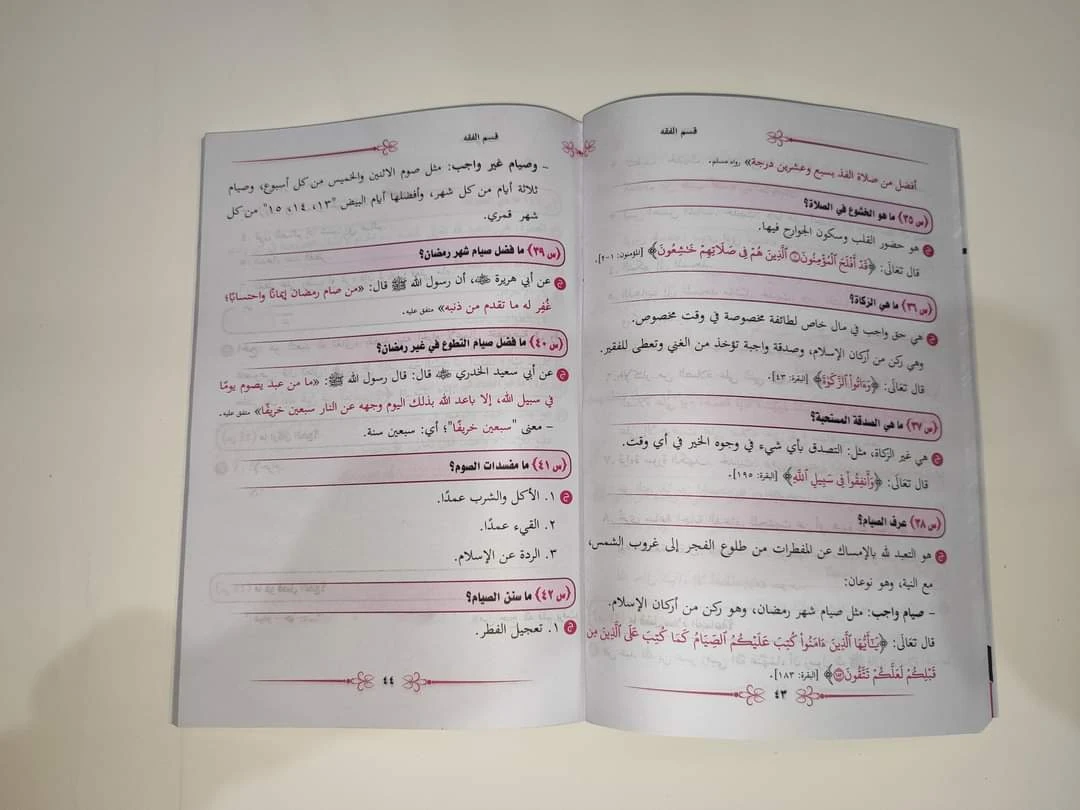 قسم الفقه
أفضل من صلاة الفذ بسبع وعشرين درجة» رواه مسلم.
س ٣٥) ما هو الخشوع في الصلاة؟
ج هو حضور القلب وسكون الجوارح فيها.
قال تعالى: ﴿قَدْ أَفْلَحَ ٱلْمُؤْمِنُونَ ۝ ٱلَّذِينَ هُمْ فِى صَلَاتِهِمْ خَـٰشِعُونَ﴾ [المؤمنون: ١-٢].
س ٣٦) ما هي الزكاة؟
ج هي حق واجب في مال خاص لطائفة مخصوصة في وقت مخصوص.
وهي ركن من أركان الإسلام، وصدقة واجبة تؤخذ من الغني وتعطى للفقير.
قال تعالى: ﴿وَءَاتُوا۟ ٱلزَّكَوٰةَ﴾ [البقرة: ٤٣].
س ٣٧) ما هي الصدقة المستحبة؟
ج هي غير الزكاة، مثل: التصدق بأي شيء في وجوه الخير في أي وقت.
قال تعالى: ﴿وَأَنفِقُوا۟ فِى سَبِيلِ ٱللَّهِ﴾ [البقرة: ١٩٥].
س ٣٨) عرف الصيام؟
ج هو التعبد لله بالإمساك عن المفطرات من طلوع الفجر إلى غروب الشمس،
مع النية، وهو نوعان:
- صيام واجب: مثل صيام شهر رمضان، وهو ركن من أركان الإسلام.
قال تعالى: ﴿يَـٰٓأَيُّهَا ٱلَّذِينَ ءَامَنُوا۟ كُتِبَ عَلَيْكُمُ ٱلصِّيَامُ كَمَا كُتِبَ عَلَى ٱلَّذِينَ مِن
قَبْلِكُمْ لَعَلَّكُمْ تَتَّقُونَ ۝﴾ [البقرة: ١٨٣].
٤٣
قسم الفقه
- وصيام غير واجب: مثل صوم الاثنين والخميس من كل أسبوع، وصيام
ثلاثة أيام من كل شهر، وأفضلها أيام البيض "١٣، ١٤، ١٥" من كل
شهر قمري.
س ٣٩) ما فضل صيام شهر رمضان؟
ج عن أبي هريرة ﷺ، أن رسول الله ﷺ قال: «من صام رمضان إيمانًا واحتسابًا؛
غُفِر له ما تقدم من ذنبه» متفق عليه.
س ٤٠) ما فضل صيام التطوع في غير رمضان؟
ج عن أبي سعيد الخدري قال: قال رسول الله ﷺ: «ما من عبد يصوم يومًا
في سبيل الله، إلا باعد الله بذلك اليوم وجهه عن النار سبعين خريفًا» متفق عليه.
- معنى "سبعين خريفًا"؛ أي: سبعين سنة.
س ٤١) ما مفسدات الصوم؟
ج ١. الأكل والشرب عمدًا.
٢. القيء عمدًا.
٣. الردة عن الإسلام.
س ٤٢) ما سنن الصيام؟
ج ١. تعجيل الفطر.
٤٤